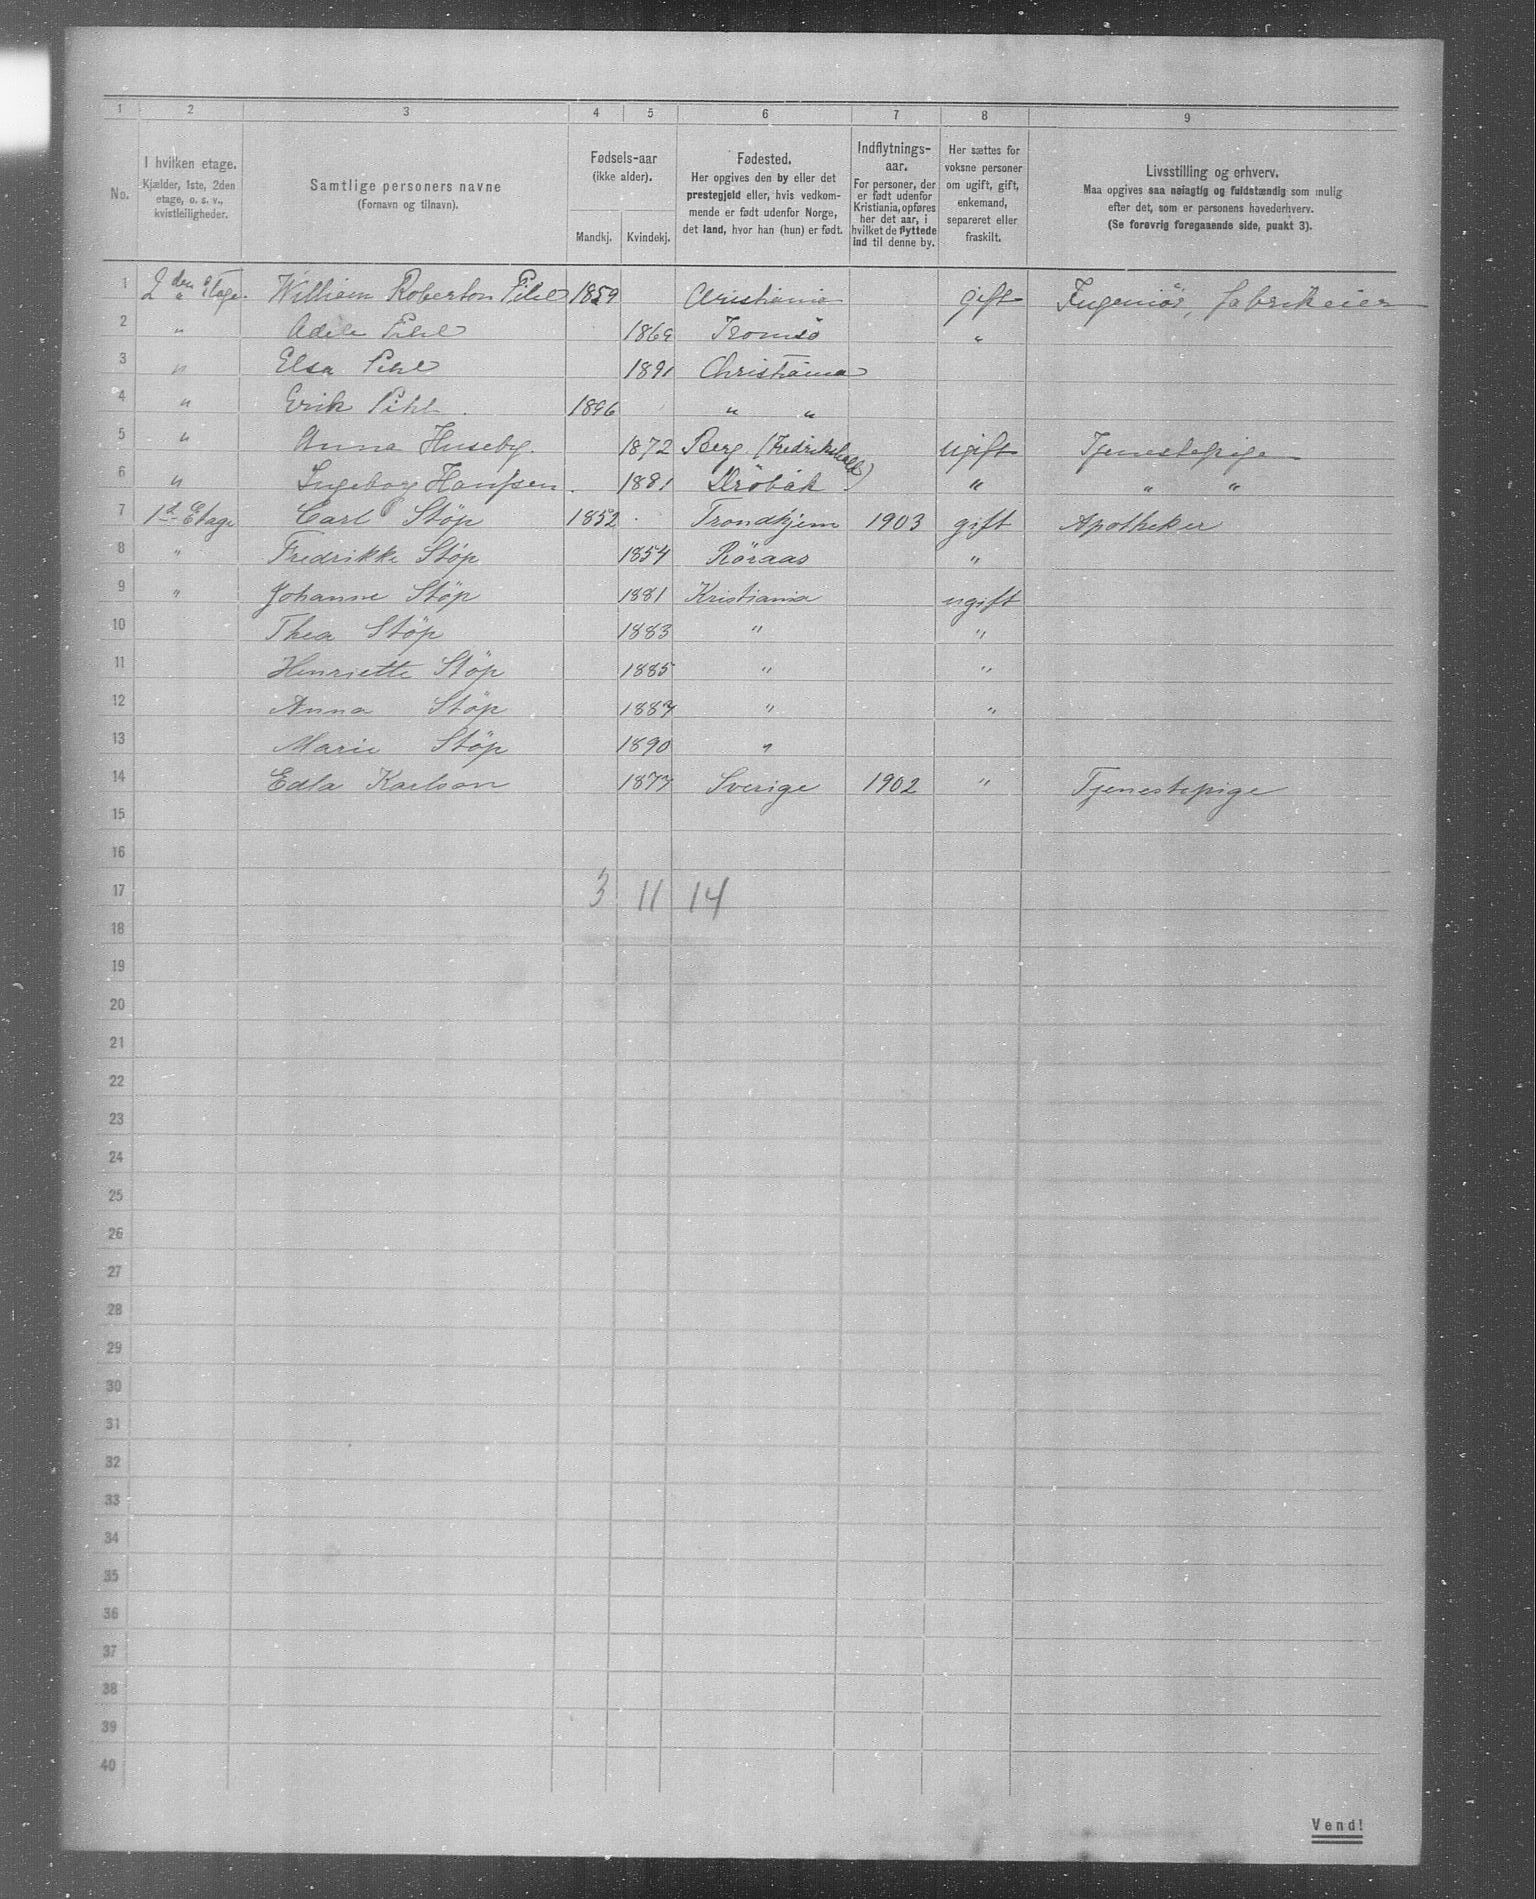 1 2 3 4 5 6 7 8 9
No.
I hvilken etage.
Kjælder, 1ste, 2den
etage, o. s. v.,
kvistleiligheder.
Samtlige personers navne
(Fornavn og tilnavn).
Fødsels-aar
(ikke alder).
Mandkj. Kvindekj.
Fødested.
Her opgives den by eller det
prestegjeld eller, hvis vedkom-
mende er født udenfor Norge,
det land, hvor han (hun) er født.
Indflytnings-
aar.
For personer, der
er født udenfor
Kristiania, opføres
her det aar, i
hvilket de flyttede
ind til denne by.
Her sættes for
voksne personer
om ugift, gift,
enkemand,
separeret eller
fraskilt.
Livsstilling og erhverv.
Maa opgives saa nøiagtig og fuldstændig som mulig
efter det, som er personens hovederhverv.
(Se forøvrig foregaaende side, punkt 3).
1 2den Etage. William Roberton Pihl 1859 Christiania gift Ingeniör, fabrikeier
2 " Adele Pihl 1869 Tromsö "
3 " Elsa Pihl 1891 Christiania
4 " Erik Pihl. 1896 " "
5 " Anna Huseby. 1872 Berg (Fredrikshald) ugift Tjenestepige
6 " Ingeborg Hanssen. 1881 Dröbak " " "
7 1st Etage Carl Støp 1852 Trondhjem 1903 gift Apotheker
8 " Fredrikke Støp 1854 Röraas "
9 " Johanne Støp 1881 Kristiania ugift
10 Thea Støp 1883 " "
11 Henriette Støp 1885 " "
12 Anna Støp 1887 " "
13 Marie Støp 1890 "
14 Edla Karlson 1877 Sverige 1902 " Tjenestepige
15
16
17 3 11 14
18
19
20
21
22
23
24
25
26
27
28
29
30
31
32
33
34
35
36
37
38
39
40
Vend!